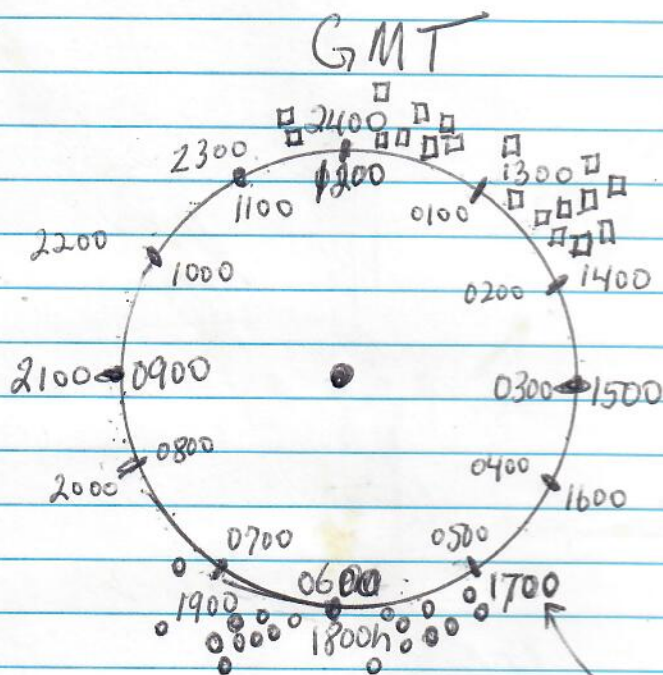 GMT
2400
2300
1200
1300
1100
0100
2200
1000
0200
1400
2100
0900
0300
1500
0800
0400
2000
1600
0700
0500
0600
1700
1900
1800h